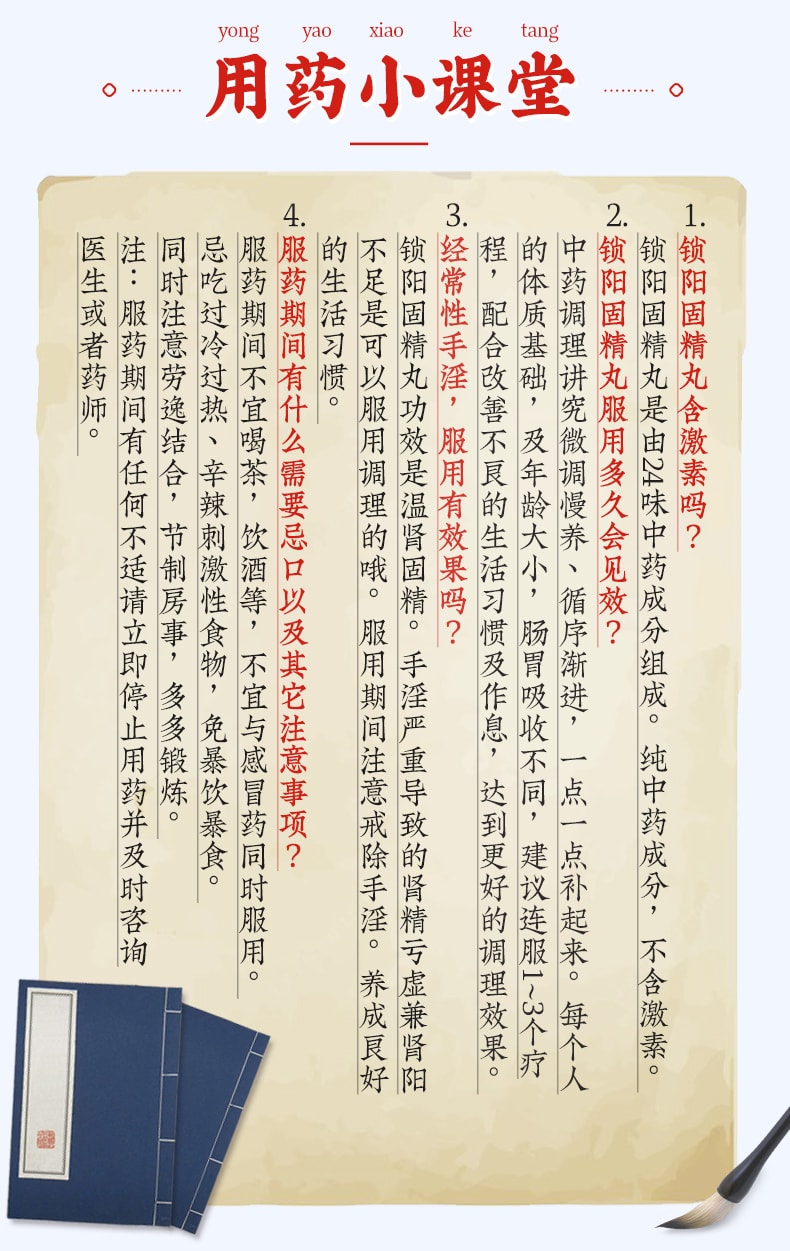 yong yao xiao ke tang
用药小课堂
1.
锁阳固精丸含激素吗？
锁阳固精丸是由24味中药成分组成。纯中药成分，不含激素。
2.
锁阳固精丸服用多久会见效？
中药调理讲究微调慢养、循序渐进，一点一点补起来。每个人
的体质基础，及年龄大小，肠胃吸收不同，建议连服1~3个疗
程，配合改善不良的生活习惯及作息，达到更好的调理效果。
3.
经常性手淫，服用有效果吗？
锁阳固精丸功效是温肾固精。手淫严重导致的肾精亏虚兼肾阳
不足是可以服用调理的哦。服用期间注意戒除手淫。养成良好
的生活习惯。
4.
服药期间有什么需要忌口以及其它注意事项？
服药期间不宜喝茶，饮酒等，不宜与感冒药同时服用。
忌吃过冷过热、辛辣刺激性食物，免暴饮暴食。
同时注意劳逸结合，节制房事，多多锻炼。
注：服药期间有任何不适请立即停止用药并及时咨询
医生或者药师。